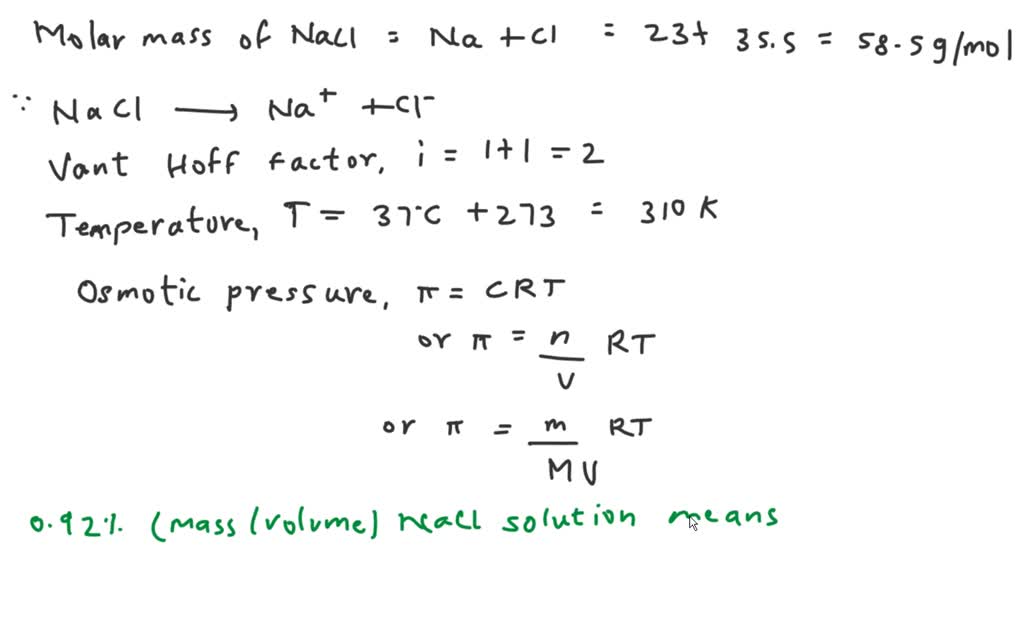 Molar mass of NaCl = Na + Cl = 23+ 35.5 = 58.5 g/mol
∵ NaCl ⟶ Na⁺ + Cl⁻
Vant Hoff factor, i = 1+1 = 2
Temperature, T = 37°C + 273 = 310 K
Osmotic pressure, π = CRT
or π = n/V RT
or π = m/MV RT
0.92%. (mass/volume) NaCl solution means